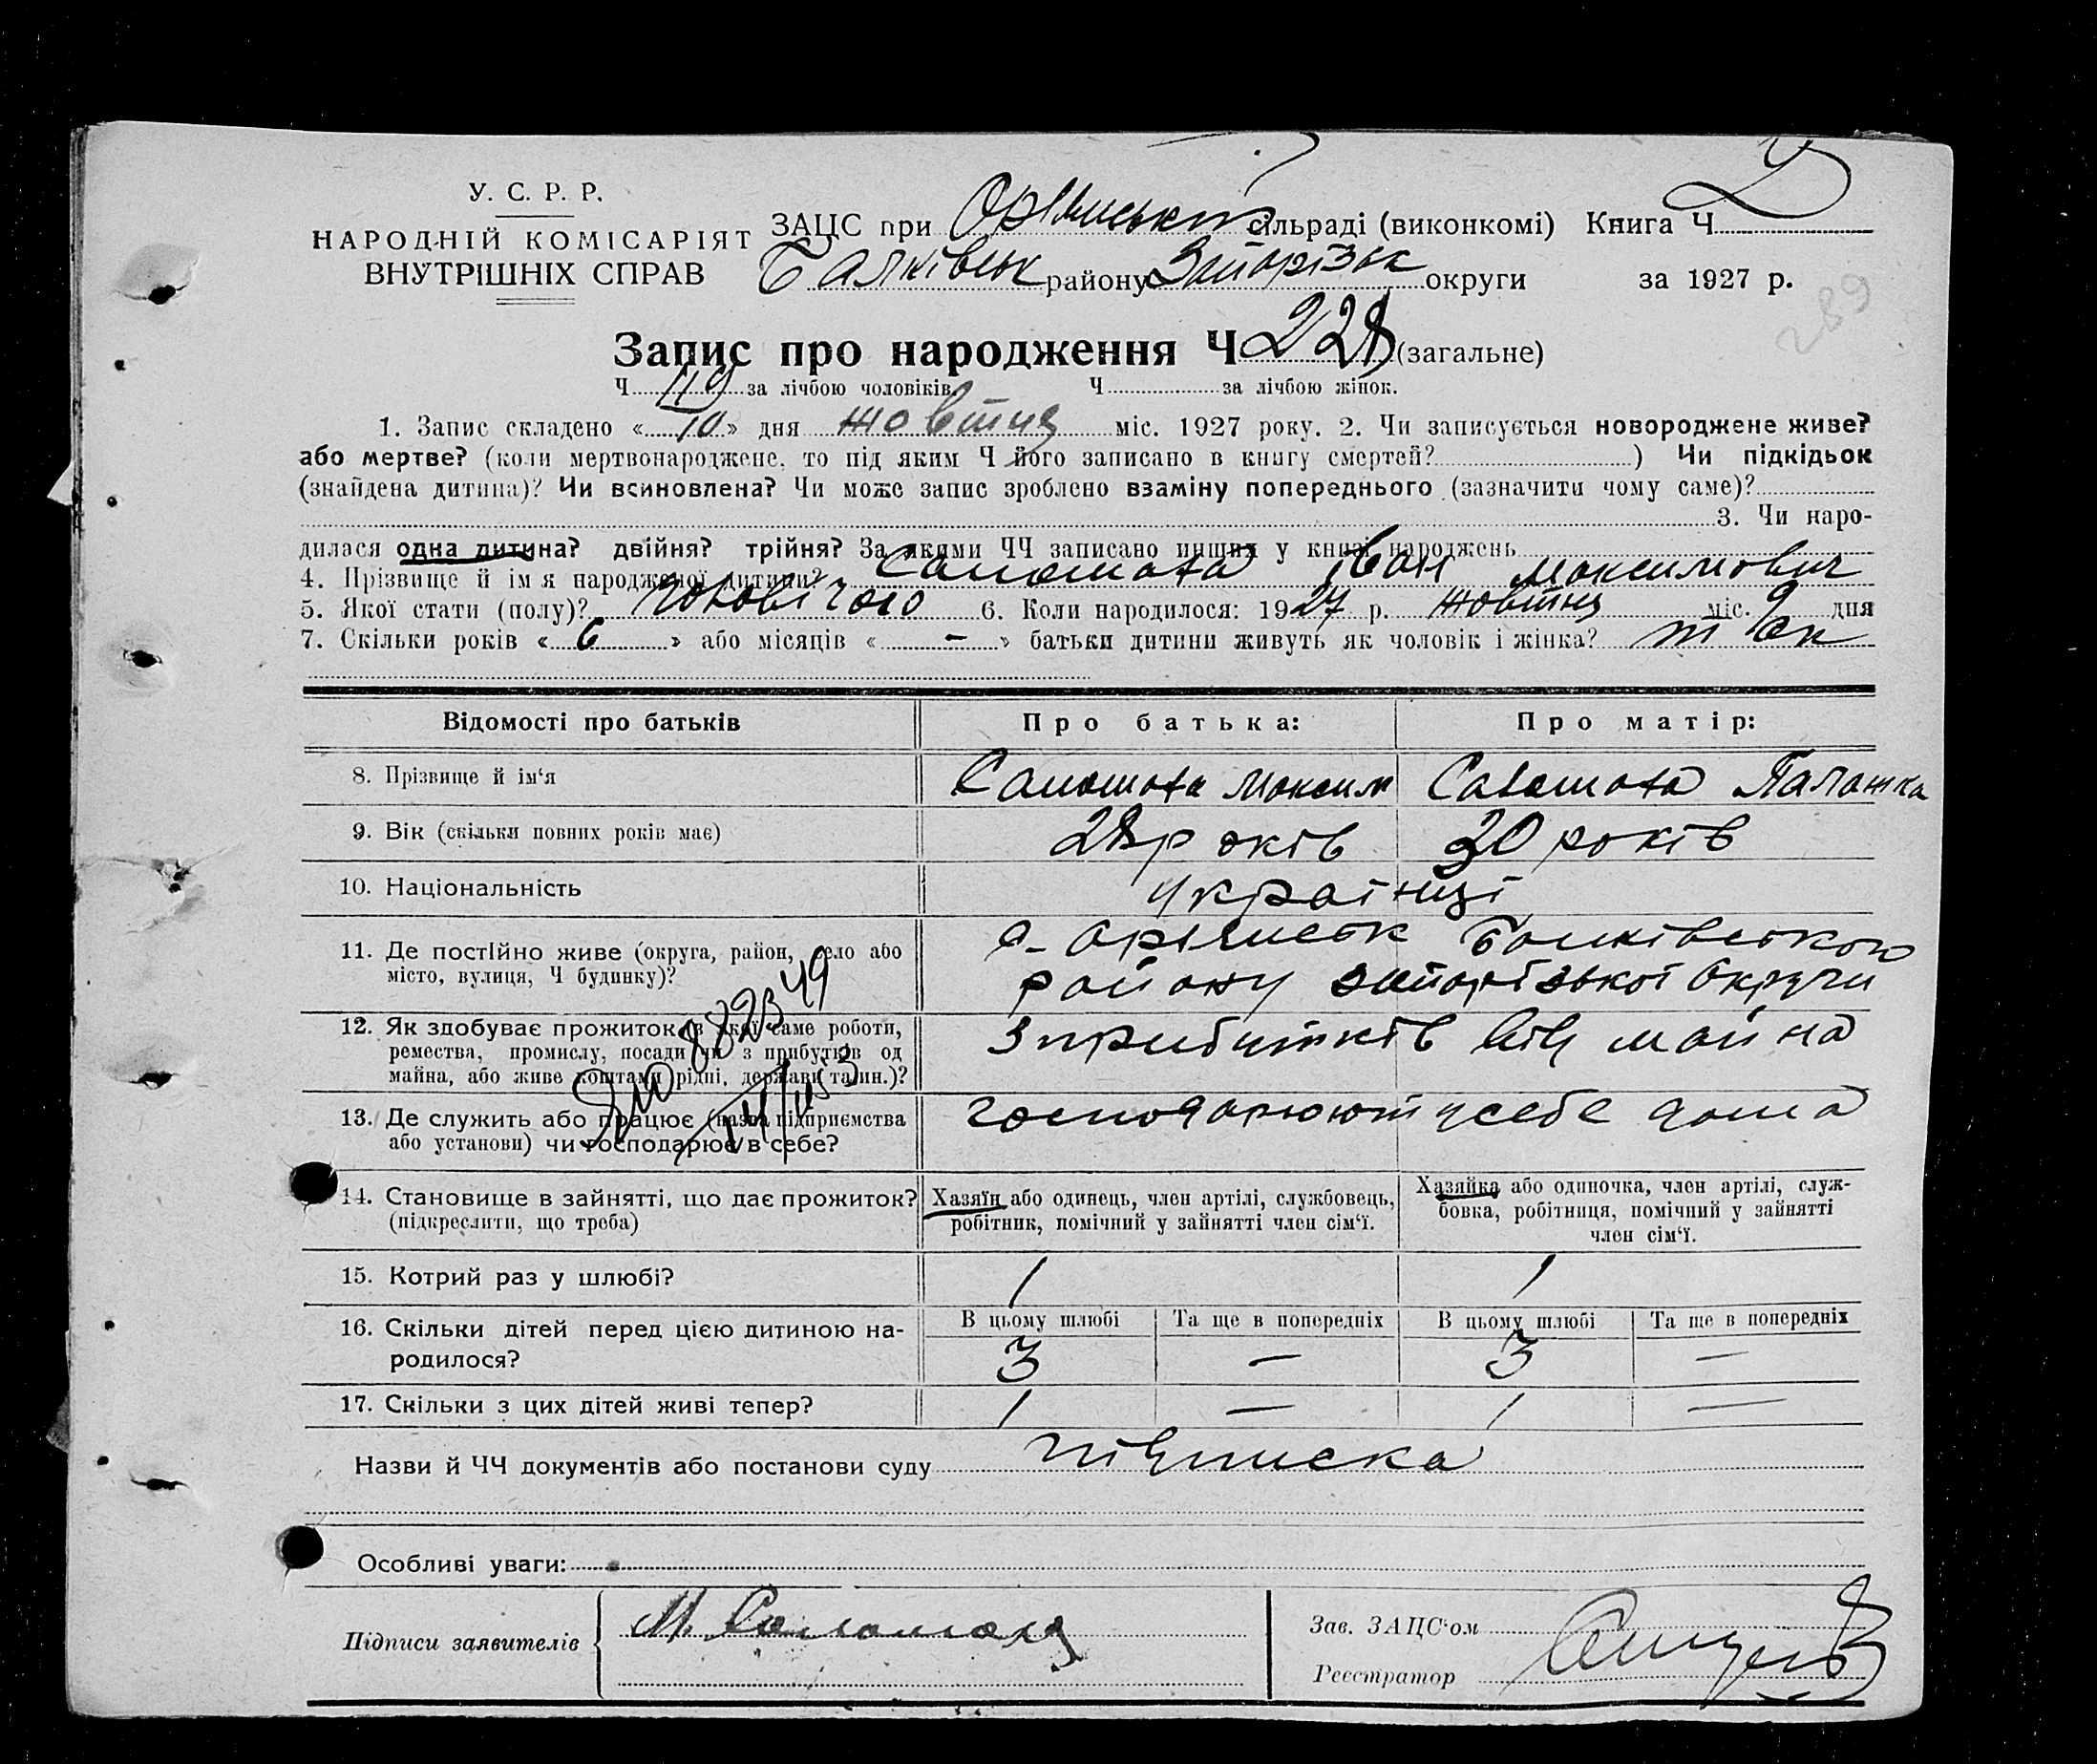 У. С. Р. Р.
НАРОДНІЙ КОМІСАРІЯТ
ВНУТРІШНІХ СПРАВ
ЗАЦС при сільраді (виконкомі) Книга Ч
району округи за 1927 р.
289
Запис про народження Ч 228 (загальне)
Ч 119 за лічбою чоловіків. Ч за лічбою жінок.
1. Запис складено « 10 » дня жовтня міс. 1927 року. 2. Чи записується новороджене живе?
або мертве? (коли мертвонароджене, то під яким Ч його записано в книгу смертей? ) Чи підкідьок
(знайдена дитина)? Чи всиновлена? Чи може запис зроблено взаміну попереднього (зазначити чому саме)?
3. Чи наро-
дилася одна дитина? двійня? трійня? За якими ЧЧ записано инших у книзі народжень
4. Прізвище й ім'я народженої дитини? Іван Максимович
5. Якої стати (полу)? чоловічого 6. Коли народилося: 1927 р. жовтня міс. 9 дня
7. Скільки років « 6 » або місяців « – » батьки дитини живуть як чоловік і жінка? так
Відомості про батьків Про батька: Про матір:
8. Прізвище й ім'я Максим Палажка
9. Вік (скільки повних років має) 28 років 30 років
10. Національність українці
11. Де постійно живе (округа, район, село або
місто, вулиця, Ч будинку)?
району запорізької округи
12. Як здобуває прожиток (з якої саме роботи,
ремества, промислу, посади чи з прибутків од
майна, або живе коштами рідні, держави та ин.)?
з прибутків від майна
13. Де служить або працює (назва підприємства
або установи) чи господарює в себе?
господарюют у себе дома
14. Становище в зайнятті, що дає прожиток?
(підкреслити, що треба)
Хазяїн або одинець, член артілі, службовець,
робітник, помічний у зайнятті член сім'ї.
Хазяйка або одиночка, член артілі, служ-
бовка, робітниця, помічний у зайнятті
член сім'ї.
15. Котрий раз у шлюбі? 1 1
16. Скільки дітей перед цією дитиною на-
родилося?
В цьому шлюбі Та ще в попередніх В цьому шлюбі Та ще в попередніх
3 – 3 –
17. Скільки з цих дітей живі тепер? 1 – 1 –
Назви й ЧЧ документів або постанови суду підписка
Особливі уваги:
Підписи заявителів М.
Зав. ЗАЦС'ом
Реєстратор